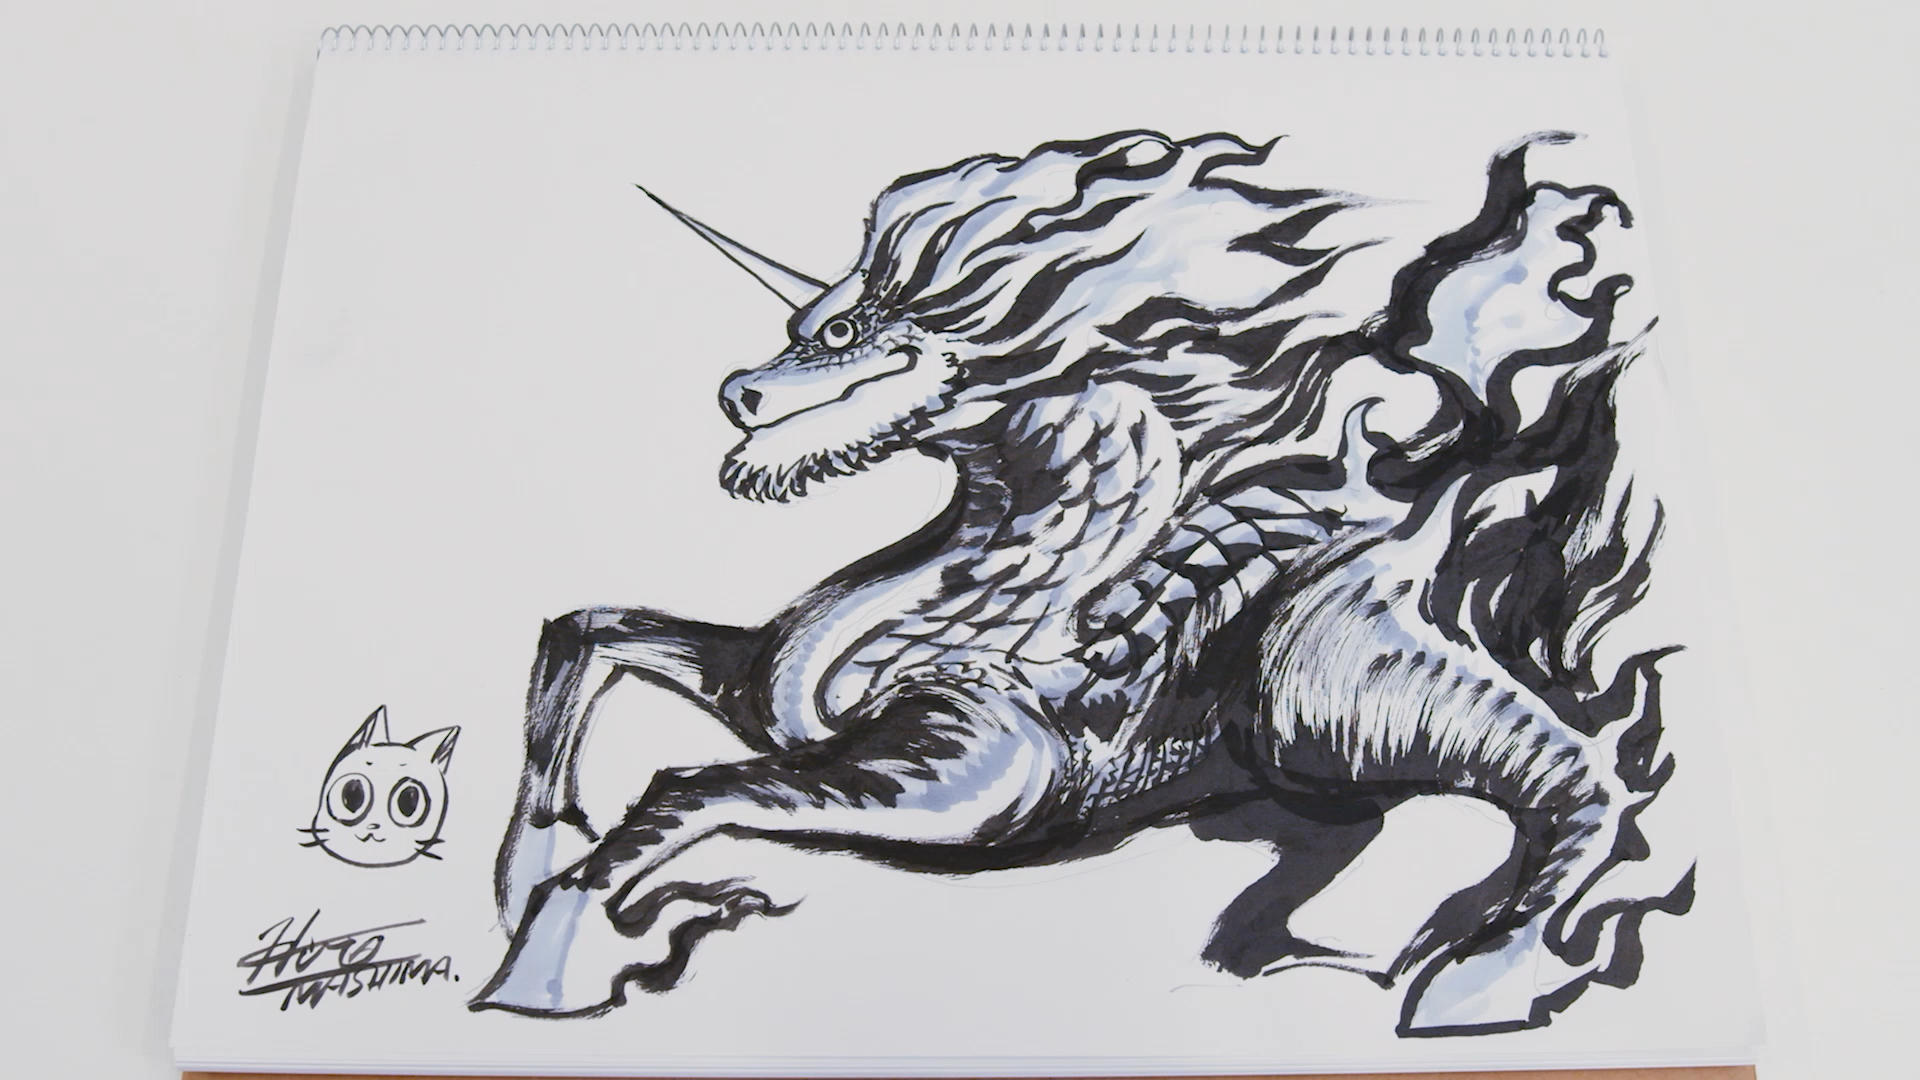 Hiro
MASHIMA.